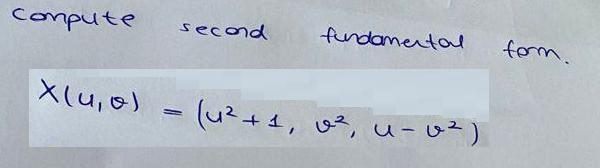 compute second fundamental form.
X(u,v) = (u²+1, v², u-v²)